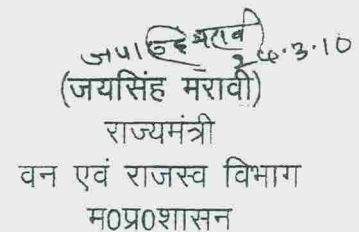 जयसिंह मरावी
26.3.10
(जयसिंह मरावी)
राज्यमंत्री
वन एवं राजस्व विभाग
म0प्र0शासन